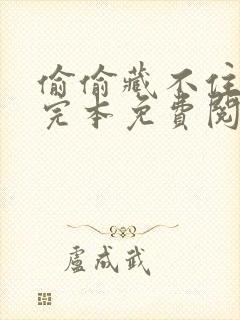 偷偷藏不住
完本免費閱
盧成武